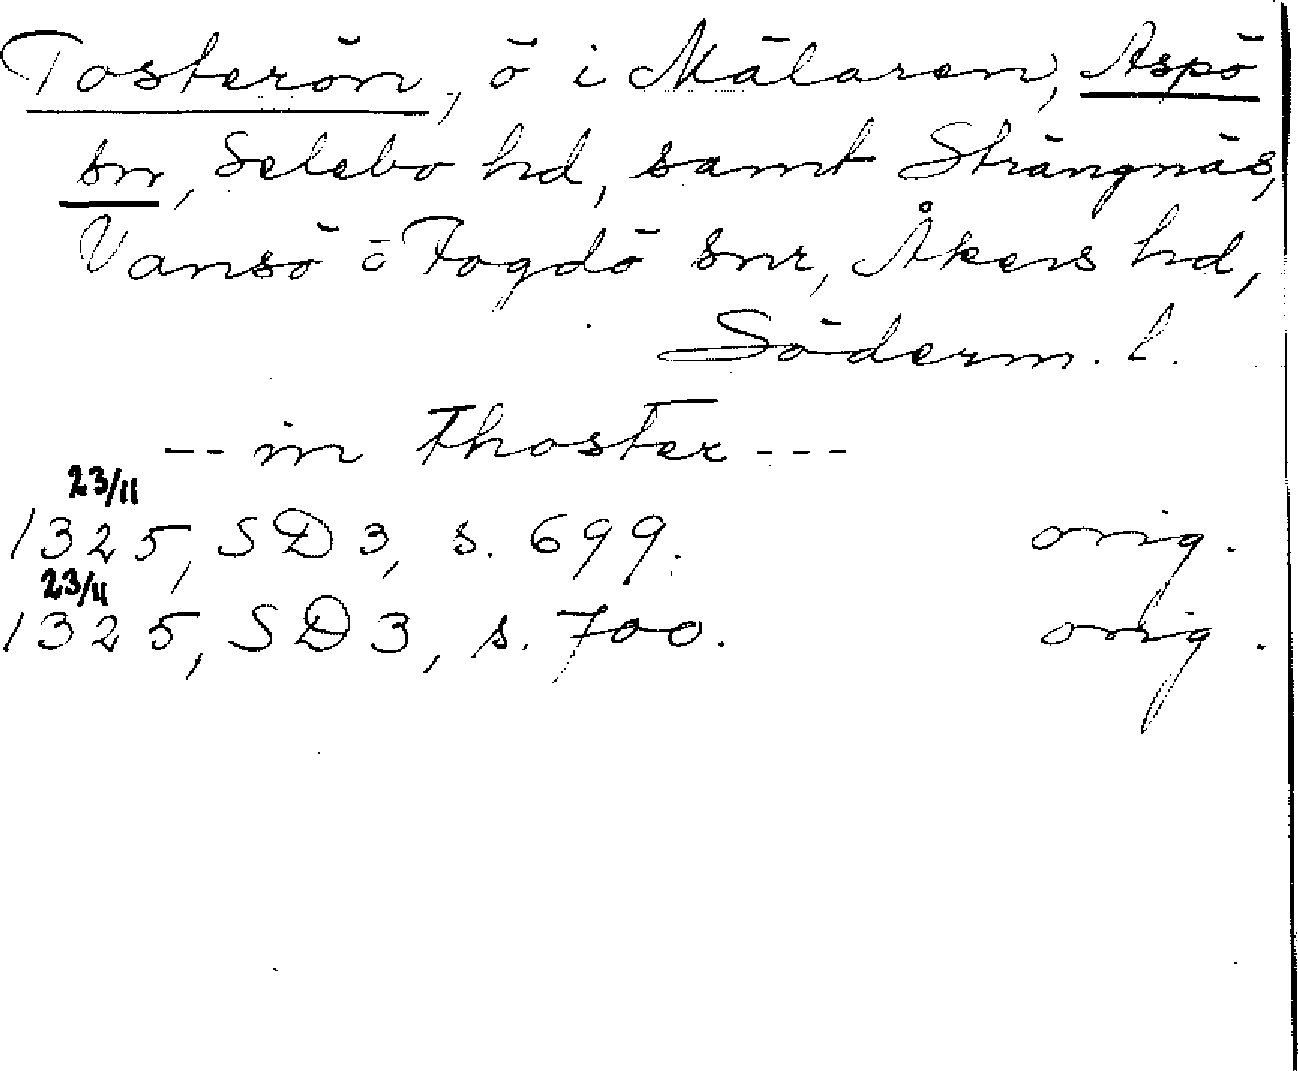 Tosterön, ö i Mälaren, Aspö
sn, Selebo hd, samt Strängnäs,
Vansö o Fogdö snr, Åkers hd,
Söderm. l.
-- in Thoster ---
23/11
1325, SD 3, s. 699. orig.
23/11
1325, SD 3, s. 700. orig.